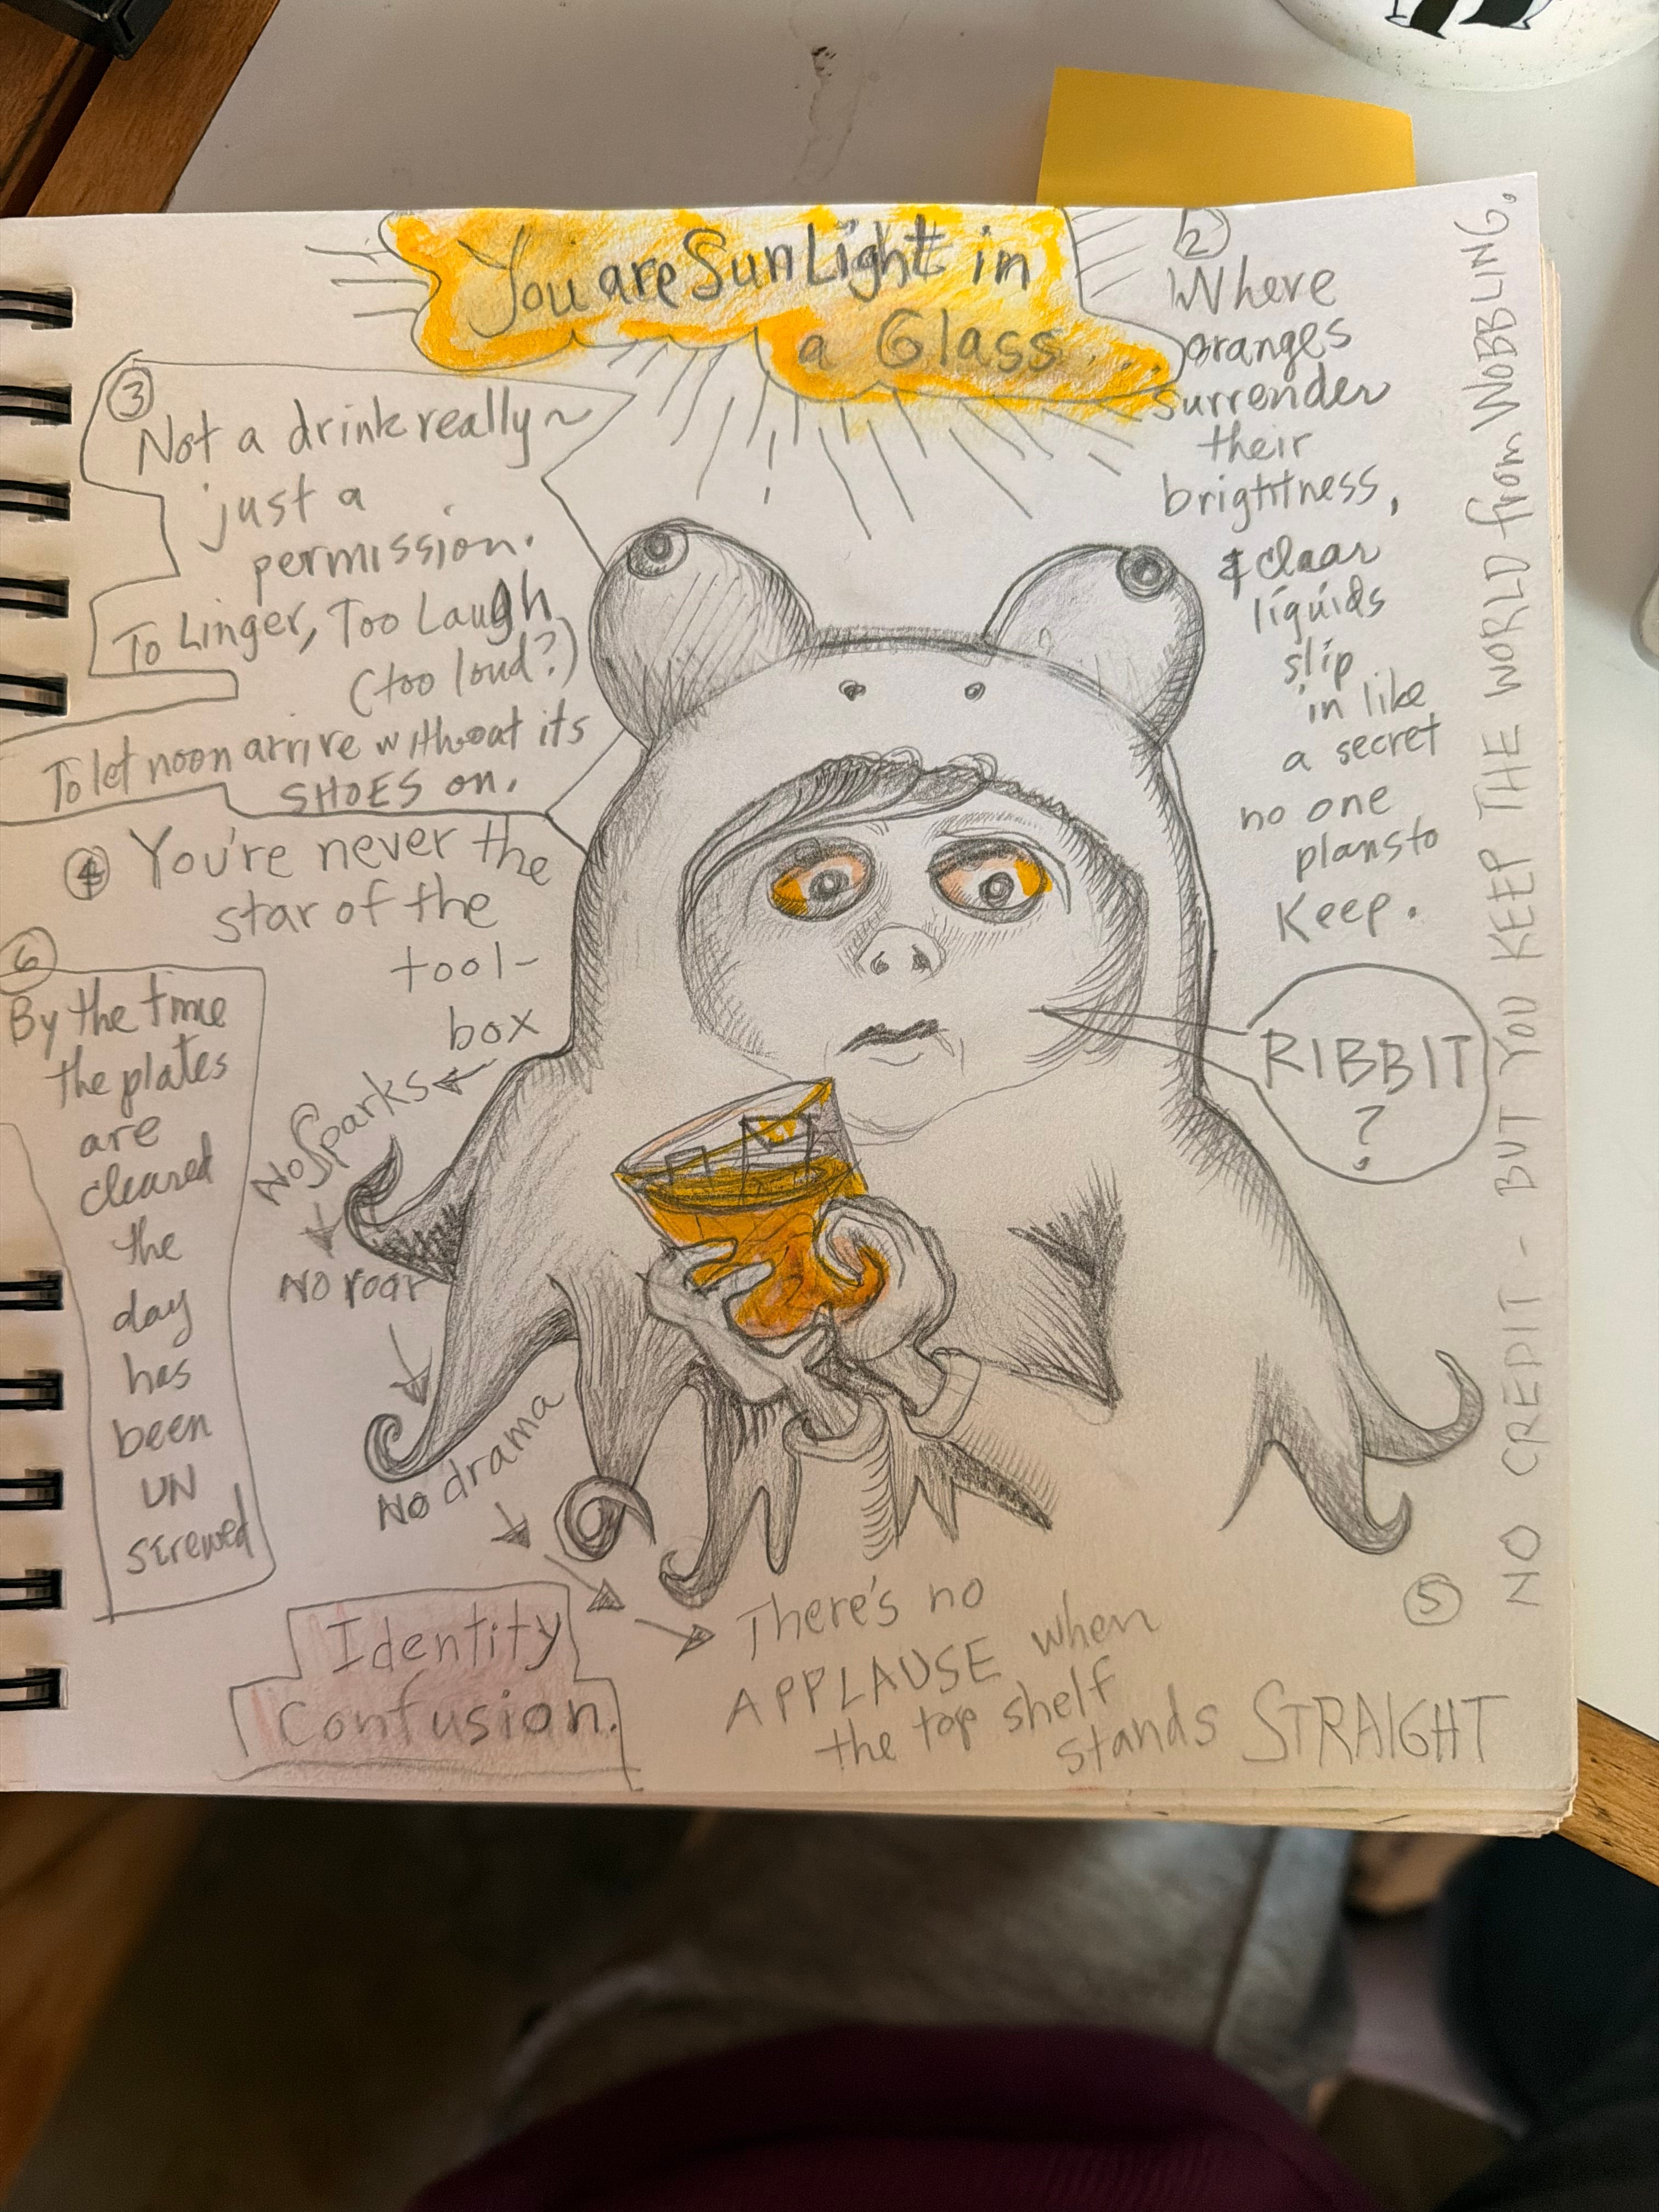 You are SunLight in
a Glass...
2
Where
oranges
surrender
their
brightness,
& claar
liquids
slip
in like
a secret
no one
plans to
Keep.
3
Not a drink really~
just a
permission.
To Linger, Too Laugh
(too loud?)
To let noon arrive without its
SHOES on.
4
You're never the
star of the
tool-
box
No Sparks
No roar
No drama
There's no
APPLAUSE when
the top shelf
stands STRAIGHT
5
NO CREDIT - BUT YOU KEEP THE WORLD from WOBBLING.
6
By the time
the plates
are
cleared
the
day
has
been
UN
screwed
RIBBIT
?
Identity
Confusion.